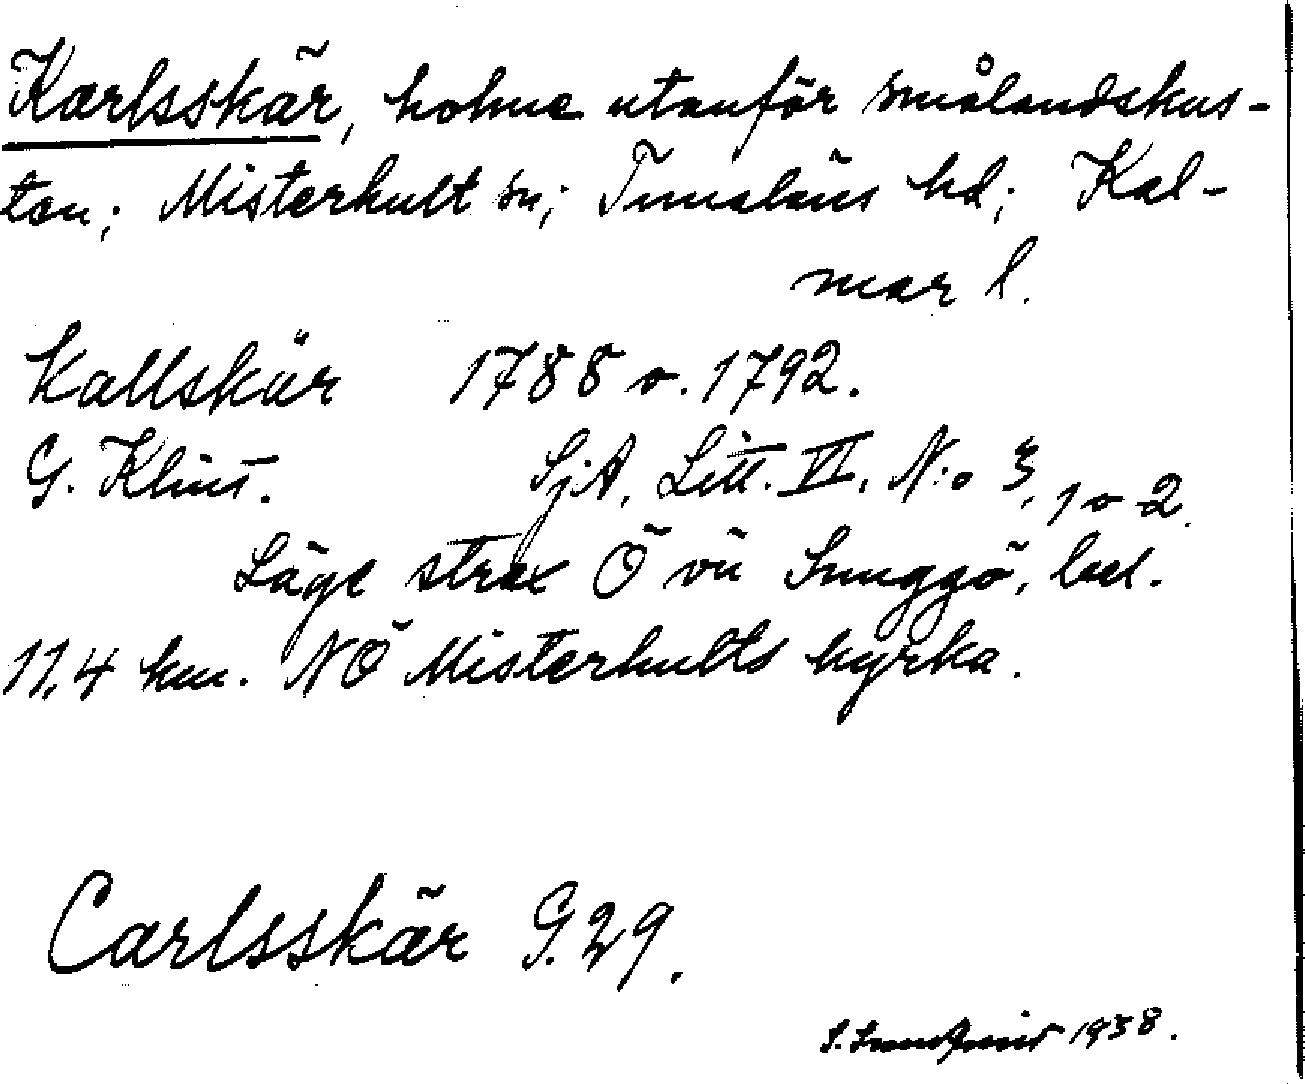 Karlsskär, holme utanför smålandskus-
ten; Misterhult sn; Tunaläns hd; Kal-
mar l.
Kallskär 1788 o. 1792.
G. Klint. SjA, Litt. VI, N:o 3, 1 o 2.
Läge strax Ö vü Sunggö, bel.
11,4 km. NÖ Misterhults kyrka.
Carlsskär G. 29.
S. 1938.